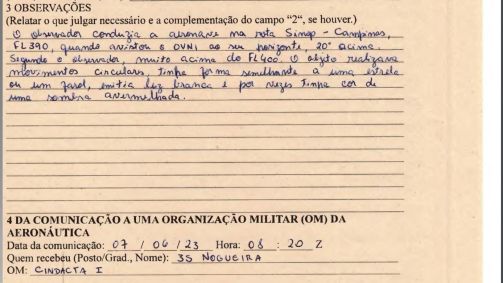 3 OBSERVAÇÕES
(Relatar o que julgar necessário e a complementação do campo "2", se houver.)
O observador conduzia a aeronave na rota Sinop - Campinas,
FL390, quando avistou o OVNI ao seu horizonte, 20° acima.
Segundo o observador, muito acima do FL400. O objeto realizava
movimentos circulares, tinha forma semelhante a uma estrela
ou um farol, emitia luz branca e por vezes tinha cor de
uma sombra avermelhada.
4 DA COMUNICAÇÃO A UMA ORGANIZAÇÃO MILITAR (OM) DA
AERONÁUTICA
Data da comunicação: 07 / 06 / 23 Hora: 08 : 20 Z
Quem recebeu (Posto/Grad., Nome): 3S NOGUEIRA
OM: CINDACTA I